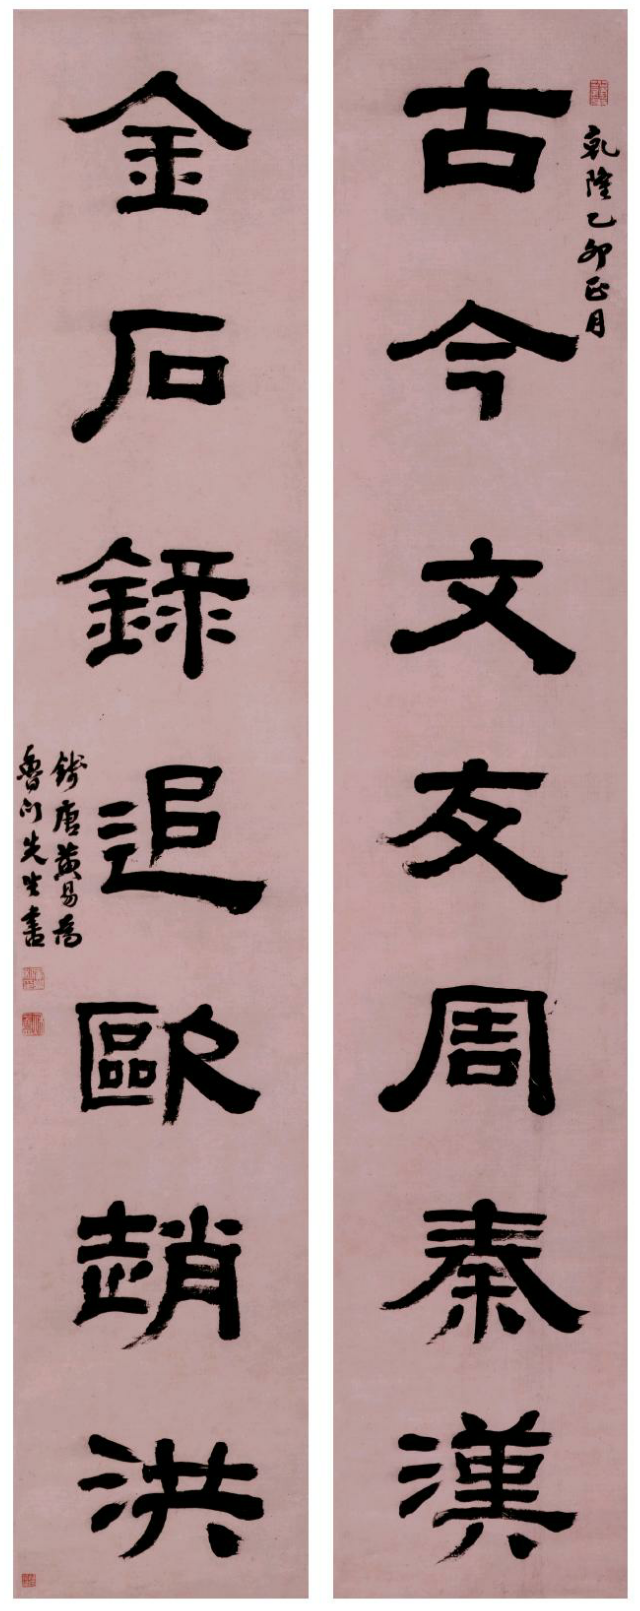 乾隆乙卯正月
古今文友周秦漢
金石錄追歐趙洪
錢唐黃易為
魯門先生書